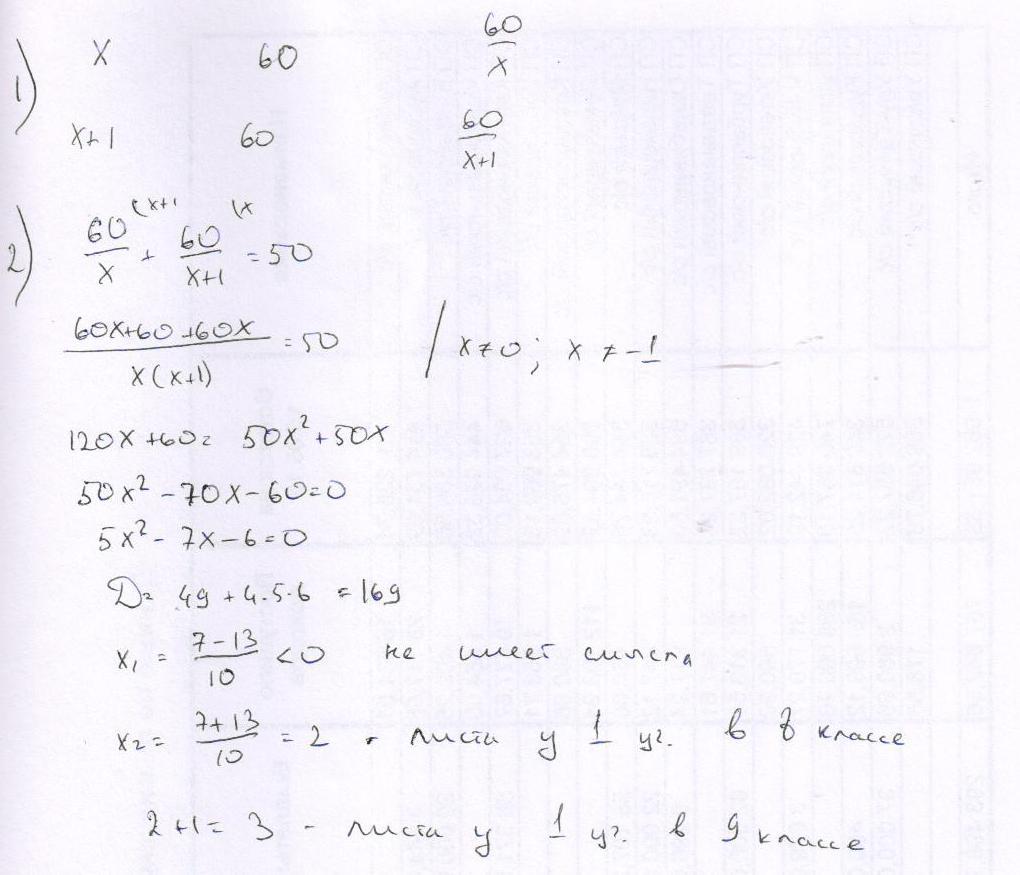 1) x 60 60/x
x+1 60 60/(x+1)
2) 60/x (x+1 + 60/(x+1) (x = 50
(60x+60+60x)/(x(x+1)) = 50 / x≠0; x≠-1
120x+60= 50x²+50x
50x²-70x-60=0
5x²-7x-6=0
D= 49+4·5·6 =169
x₁ = (7-13)/10 <0 не имеет смысла
x₂= (7+13)/10 = 2 - листа у 1 уч. в 8 классе
2+1= 3 - листа у 1 уч. в 9 классе